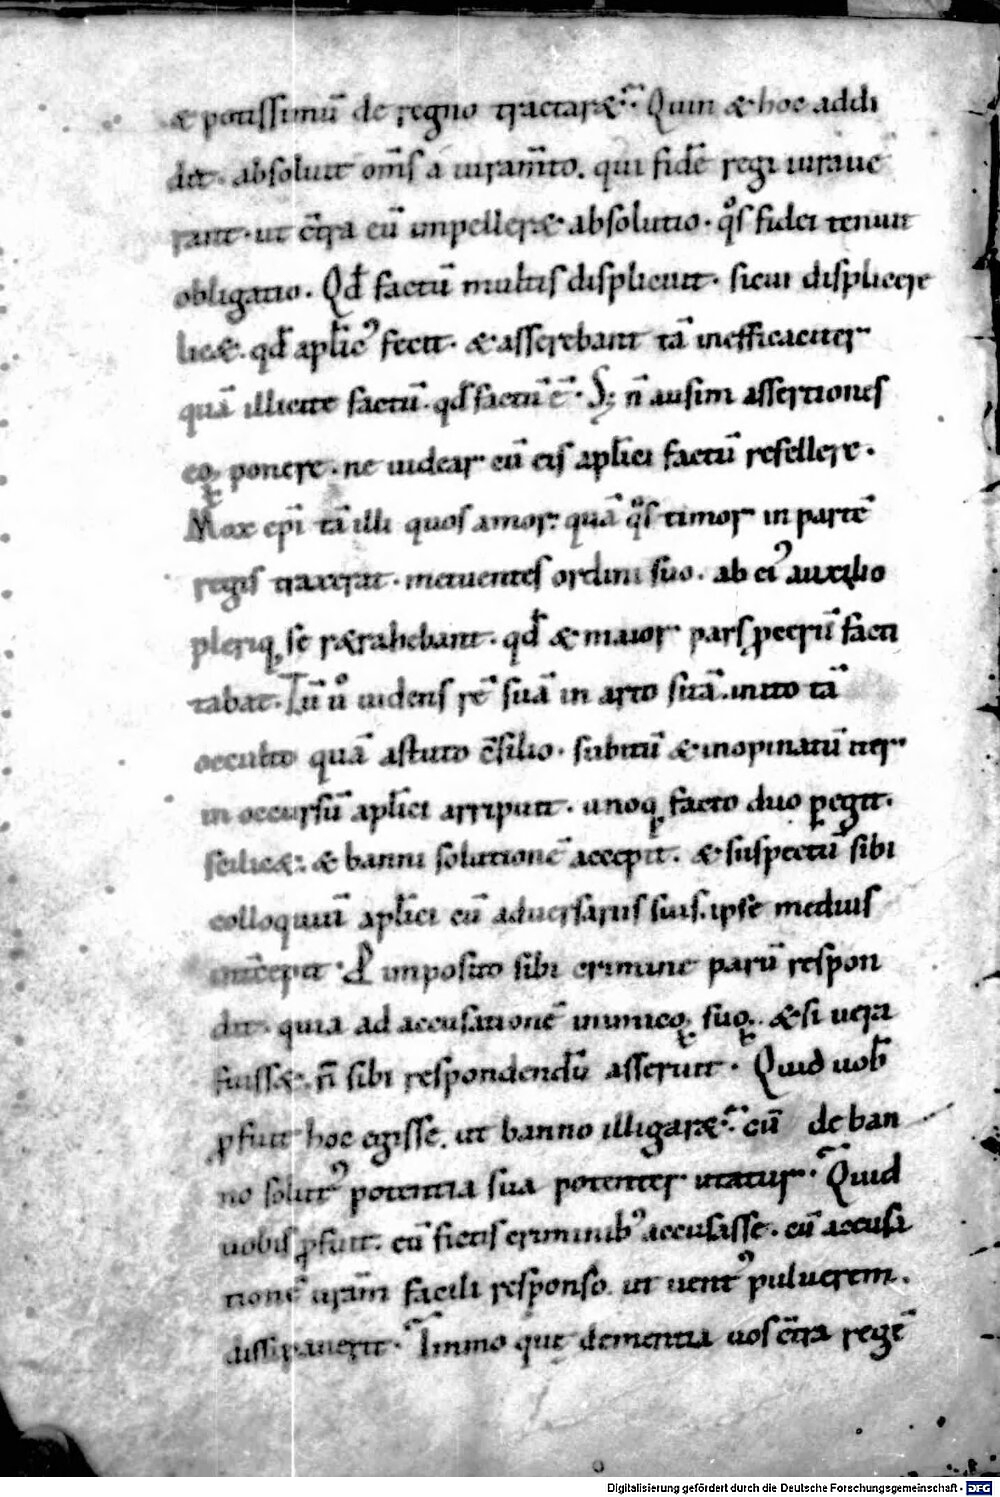 & potissimū de regno tractar&. Quin & hoc addi
dit. absoluit om̄s a iuram̄to. qui fidē regi iuraue
rant. ut c̄tra eū impeller& absolutio. qͦs fidei tenuit
obligatio. Qđ factū multis displicuit. sicui displicere
lic&. qđ apl̄icꝰ fecit. & asserebant tā inefficaciter
quā illicite factū. qđ factū ē. Sꝫ n̄ ausim assertiones
eoꝝ ponere. ne uidear cū eis apl̄ici factū refellere.
Mox ep̄i tā illi quos amor. quā qͦs timor in partē
regis traxerat. metuentes ordini suo. ab eiꝰ auxilio
pleriqꝫ se r&rahebant. qđ & maior pars ꝓcerū facti
tabat. Tū uͦ uidens rē suā in arto sitā. inito tā
occulto quā astuto c̄silio. subitū & inopinatū iter
in occursū apl̄ici arripuit. unoqꝫ facto duo ꝑegit.
scilic&. & banni solutionē accepit. & suspectū sibi
colloquiū apl̄ici cū aduersariis suis. ipse medius
int̄cepit. D̄ imposito sibi crimine parū respon
dit. quia ad accusationē inimicoꝝ suoꝝ. & si uera
fuiss&. n̄ sibi respondendū asseruit. Quid uob̄
ꝓfuit hoc egisse. ut banno illigar&. cū de ban
no solutꝰ potentia sua potenter utatur. Quid
uobis ꝓfuit. eū fictis criminibꝰ accusasse. cū accusa
tionē ur̄am facili responso. ut uentꝰ puluerem.
dissipauerit. Immo quę dementia uos c̄tra regē